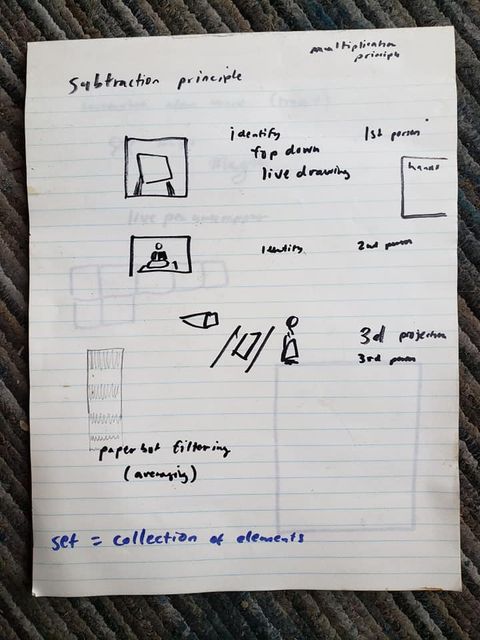 multiplication
principle
Subtraction principle
identify
top down
live drawing
1st person
hands
identity
2nd person
3d projection
3rd person
paper bot filtering
(averaging)
set = collection of elements